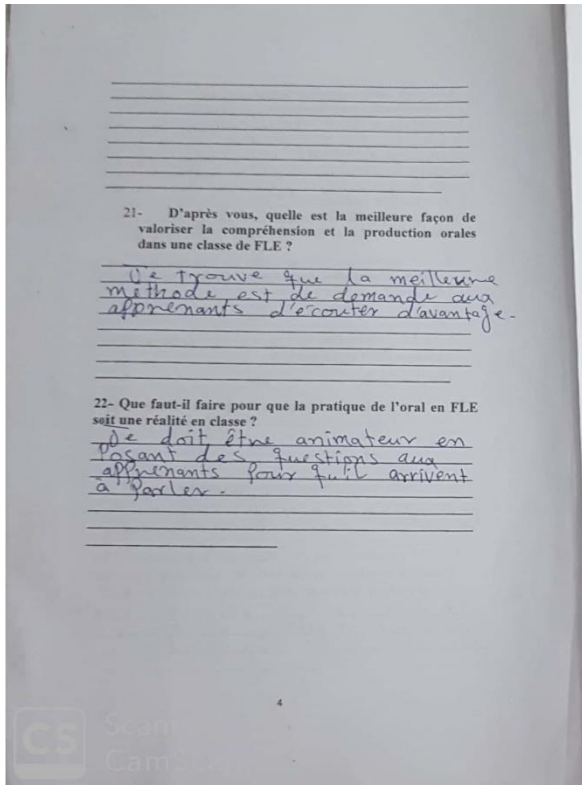 21- D'après vous, quelle est la meilleure façon de
valoriser la compréhension et la production orales
dans une classe de FLE ?
Je trouve que la meilleure
méthode est de demande aux
apprenants d'écouter d'avantage.
22- Que faut-il faire pour que la pratique de l'oral en FLE
soit une réalité en classe ?
Je doit être animateur en
Posant des questions aux
apprenants pour qu'il arrivent
à parler.
4
CS